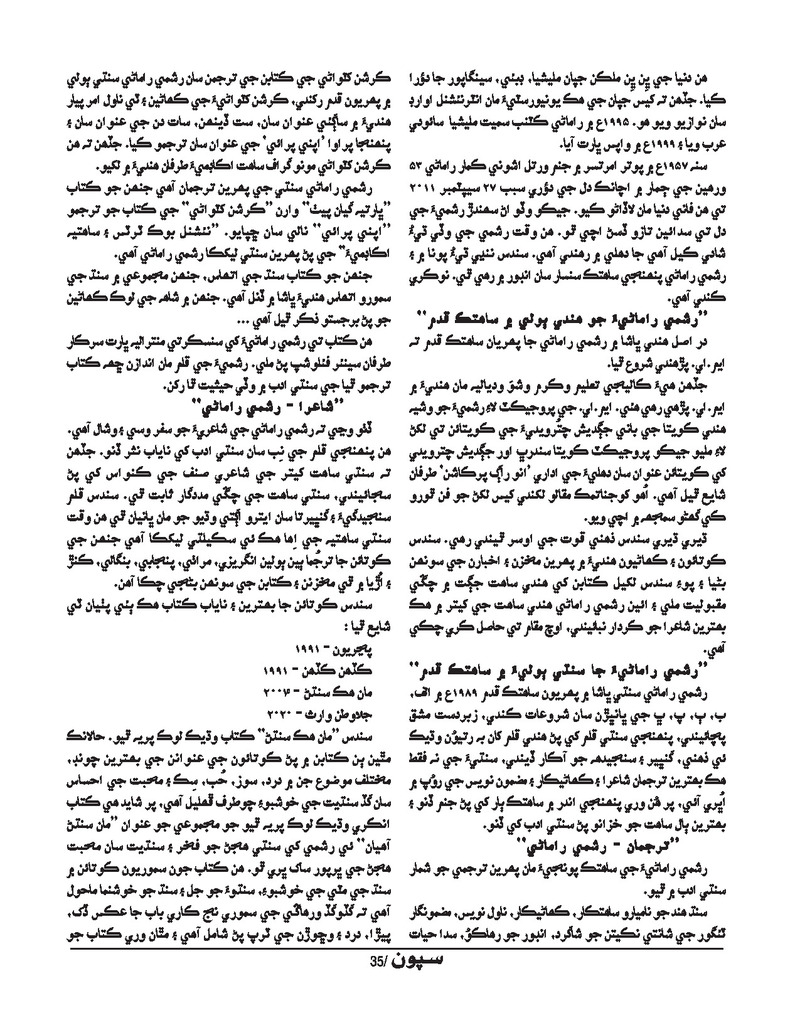 هن دنيا جي ٻن ٻن ملڪن جپان مليشيا، ڊبئي، سينگاپور جا دؤرا
ڪيا. جڏهن ته کيس جپان جي هڪ يونيورسٽيءَ مان انٽرنيشنل اوارڊ
سان نوازيو ويو هو. ١٩٩٥ع ۾ راماڻي ڪٽنب سميت مليشيا سائودي
عرب ويا ۽ ١٩٩٩ع ۾ واپس ڀارت آيا.
سنه ١٩٥٧ع ۾ پوتر امرتسر ۾ جنم ورتل اشوني ڪمار راماڻي ٥٣
ورهين جي ڄمار ۾ اچانڪ دل جي دؤري سبب ٢٧ سيپٽمبر ٢٠١١
تي هن فاني دنيا مان لاڏاڻو ڪيو. جيڪو وڏو اڻ سهندڙ رشميءَ جي
دل تي سدائين تازو ڏسڻ اچي ٿو. هن وقت رشمي جي وڏي ڌيءُ
شادي ڪيل آهي جا دهلي ۾ رهندي آهي. سندس ننڍي ڌيءُ پونا ۾ ۽
رشمي راماڻي پنهنجي ساهتڪ سنسار سان اندور ۾ رهي ٿي. نوڪري
ڪندي آهي.
”رشمي راماڻيءَ جو هندي ٻولي ۾ ساهتڪ قدم“
در اصل هندي ڀاشا ۾ رشمي راماڻي جا پهريان ساهتڪ قدم ته
ايم.اي. پڙهندي شروع ٿيا.
جڏهن هيءَ ڪاليجي تعليم وڪرم وشو ودياليه مان هنديءَ ۾
ايم.اي. پڙهي رهي هئي. ايم.اي. جي پروجيڪٽ لاءِ رشميءَ جو وشيه
هندي ڪويتا جي باني جڳديش چترويديءَ جي ڪويتائن تي لکڻ
لاءِ مليو جيڪو پروجيڪٽ ڪويتا سندرڀ اور جڳديش چترويدي
کي ڪويتائن عنوان سان دهليءَ جي اداري ’انوراڳ پرڪاشن‘ طرفان
شايع ٿيل آهي. اُهو کوجناتمڪ مقالو لکندي کيس لکڻ جو فن ٿورو
ڪي گهڻو سمجهه ۾ اچي ويو.
ڌيري ڌيري سندس ذهني قوت جي اوسر ٿيندي رهي. سندس
ڪوتائون ۽ ڪهاڻيون هنديءَ ۾ بهترين مخزن ۽ اخبارن جي سونهن
بڻيا ۽ پوءِ سندس لکيل ڪتابن کي هندي ساهت جڳت ۾ چڱي
مقبوليت ملي ۽ ائين رشمي راماڻي هندي ساهت جي کيتر ۾ هڪ
بهترين شاعرا جو ڪردار نڀائيندي، اوچ مقام تي حاصل ڪري چڪي
آهي.
”رشمي راماڻيءَ جا سنڌي ٻوليءَ ۾ ساهتڪ قدم“
رشمي راماڻي سنڌي ڀاشا ۾ پهريون ساهتڪ قدم ١٩٨٩ع ۾ الف،
ب، ٻ، پ، ڀ جي پائيڙن سان شروعات ڪندي، زبردست مشق
پچائيندي، پنهنجي سنڌي قلم کي پڻ هندي قلم کان به رتيؤن وڌيڪ
ئي ذهني، گنڀير ۽ سنجيدهه جو آڪار ڏيندي، سنڌيءَ جي نه فقط
هڪ بهترين ترجمان شاعرا ۽ ڪهاڻيڪار ۽ مضمون نويس جي روُپ ۾
اُڀري آئي، پر هُن وري پنهنجي اندر ۾ ساهتڪ ٻار کي پڻ جنم ڏنو ۽
بهترين ٻال ساهت جو خزانو پڻ سنڌي ادب کي ڏنو.
”ترجمان – رشمي راماڻي“
رشمي راماڻيءَ جي ساهتڪ پونجيءَ مان پهرين ترجمي جو شمار
سنڌي ادب ۾ ٿيو.
سنڌ هند جو ناميارو ساهتڪار، ڪهاڻيڪار، ناول نويس، مضمونگار
ٽئگور جي شانتي نڪيتن جو شاگرد، اندور جو رهاڪوُ، سدا حيات
ڪرشن کٽواڻي جي ڪتابن جي ترجمن سان رشمي راماڻي سنڌي ٻولي
۾ پهريون قدم رکندي، ڪرشن کٽواڻيءَ جي ڪهاڻين ۽ ٽي ناول امر پيار
هنديءَ ۾ ساڳئي عنوان سان، ست ڏينهن، سات دن جي عنوان سان ۽
پنهنجا پراوا ’اپني پرائي‘ جي عنوان سان ترجمو ڪيا. جڏهن ته هن
ڪرشن کٽواڻي مونوگراف ساهت اڪاڊميءَ طرفان هنديءَ ۾ لکيو.
رشمي راماڻي سنڌي جي بهترين ترجمان آهي جنهن جو ڪتاب
”ڀارتيه گيان پيٺ“ وارن ”ڪرشن کٽواڻي“ جي ڪتاب جو ترجمو
”اپني پرائي“ نالي سان ڇپايو. ”نئشنل بوڪ ٽرٽس ۽ ساهتيه
اڪاڊميءَ“ جي پڻ بهترين سنڌي ليکڪا رشمي راماڻي آهي.
جنهن جو ڪتاب سنڌ جي اتهاس، جنهن مجموعي ۾ سنڌ جي
سمورو اتهاس هنديءَ ڀاشا ۾ ڏنل آهي. جنهن ۾ شاهه جي لوڪ ڪهاڻين
جو پڻ برجستو ذڪر ٿيل آهي ...
هن ڪتاب تي رشمي راماڻيءَ کي سنسڪرتي منتراليه ڀارت سرڪار
طرفان سينئر فئلوشپ پڻ ملي. رشميءَ جي قلم مان اندازن ڇهه ڪتاب
ترجمو ٿيا جي سنڌي ادب ۾ وڏي حيثيت ٿا رکن.
”شاعرا – رشمي راماڻي“
ڏٺو وڃي ته رشمي راماڻي جي شاعريءَ جو سفر وسي ۽ وشال آهي.
هن پنهنجي قلم جي نِب سان سنڌي ادب کي ناياب نثر ڏنو. جڏهن
ته سنڌي ساهت کيتر جي شاعري صنف جي ڪنواس کي پڻ
سجائيندي، سنڌي ساهت جي چڱي مددگار ثابت ٿي. سندس قلم
سنجيدگيءَ ۽ گنڀيرتا سان ايترو اڳتي وڌيو جو مان ڀانيان ٿي هن وقت
سنڌي ساهتيه جي اِها هڪ ئي سڪيلڌي ليکڪا آهي جنهن جي
ڪوتائن جا ترجُما ٻين ٻولين انگريزي، مراٺي، پنجابي، بنگالي، ڪنڙ
۽ اُڙيا ۾ ٿي مخزنن ۽ ڪتابن جي سونهن بڻجي چڪا آهن.
سندس ڪوتائن جا بهترين ۽ ناياب ڪتاب هڪ ٻئي پٺيان ٽي
شايع ٿيا :
پڃريون – ١٩٩١
ڪڏهن ڪڏهن – ١٩٩١
مان هڪ سنڌڻ – ٢٠٠۴
جلاوطن وارث – ٢٠٢٠
سندس ”مان هڪ سنڌڻ“ ڪتاب وڌيڪ لوڪ پريه ٿيو. حالانڪ
مٿين ٻن ڪتابن ۾ پڻ ڪوتائون جي عنوانن جي بهترين چونڊ،
مختلف موضوع جن ۾ درد، سوز، حُب، سِڪ ۽ محبت جي احساس
سان گڏ سنڌيت جي خوشبوءِ چوطرف ڦهليل آهي، پر شايد هي ڪتاب
انڪري وڌيڪ لوڪ پريه ٿيو جو مجموعي جو عنوان ”مان سنڌڻ
آهيان“ ئي رشمي کي سنڌي هجڻ جو فخر ۽ سنڌيت سان محبت
هجڻ جي ڀرپور ساک ڀري ٿو. هن ڪتاب جون سموريون ڪوتائن ۾
سنڌ جي مٽي جي خوشبوءِ، سنڌوءَ جو جل ۽ سنڌ جو خوشنما ماحول
آهي ته گڏوگڏ ورهاڱي جي سموري نج ڪاري باب جا عڪس ڏک،
پيڙا، درد ۽ وڇوڙن جي تڙپ پڻ شامل آهي ۽ مٿان وري ڪتاب جو
سپون /35